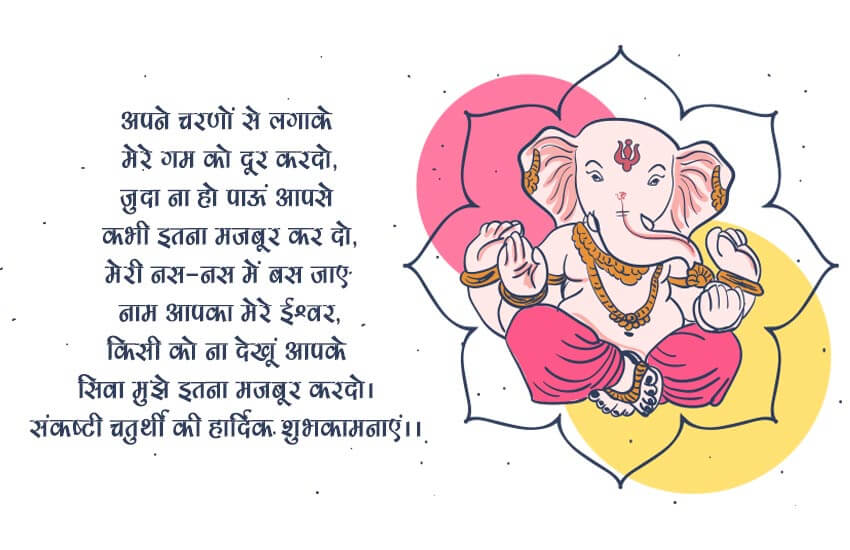 अपने चरणों से लगाके
मेरे गम को दूर करदो,
जुदा ना हो पाऊं आपसे
कभी इतना मजबूर कर दो,
मेरी नस-नस में बस जाए
नाम आपका मेरे ईश्वर,
किसी को ना देखूं आपके
सिवा मुझे इतना मजबूर करदो।
संकष्टी चतुर्थी की हार्दिक शुभकामनाएं।।